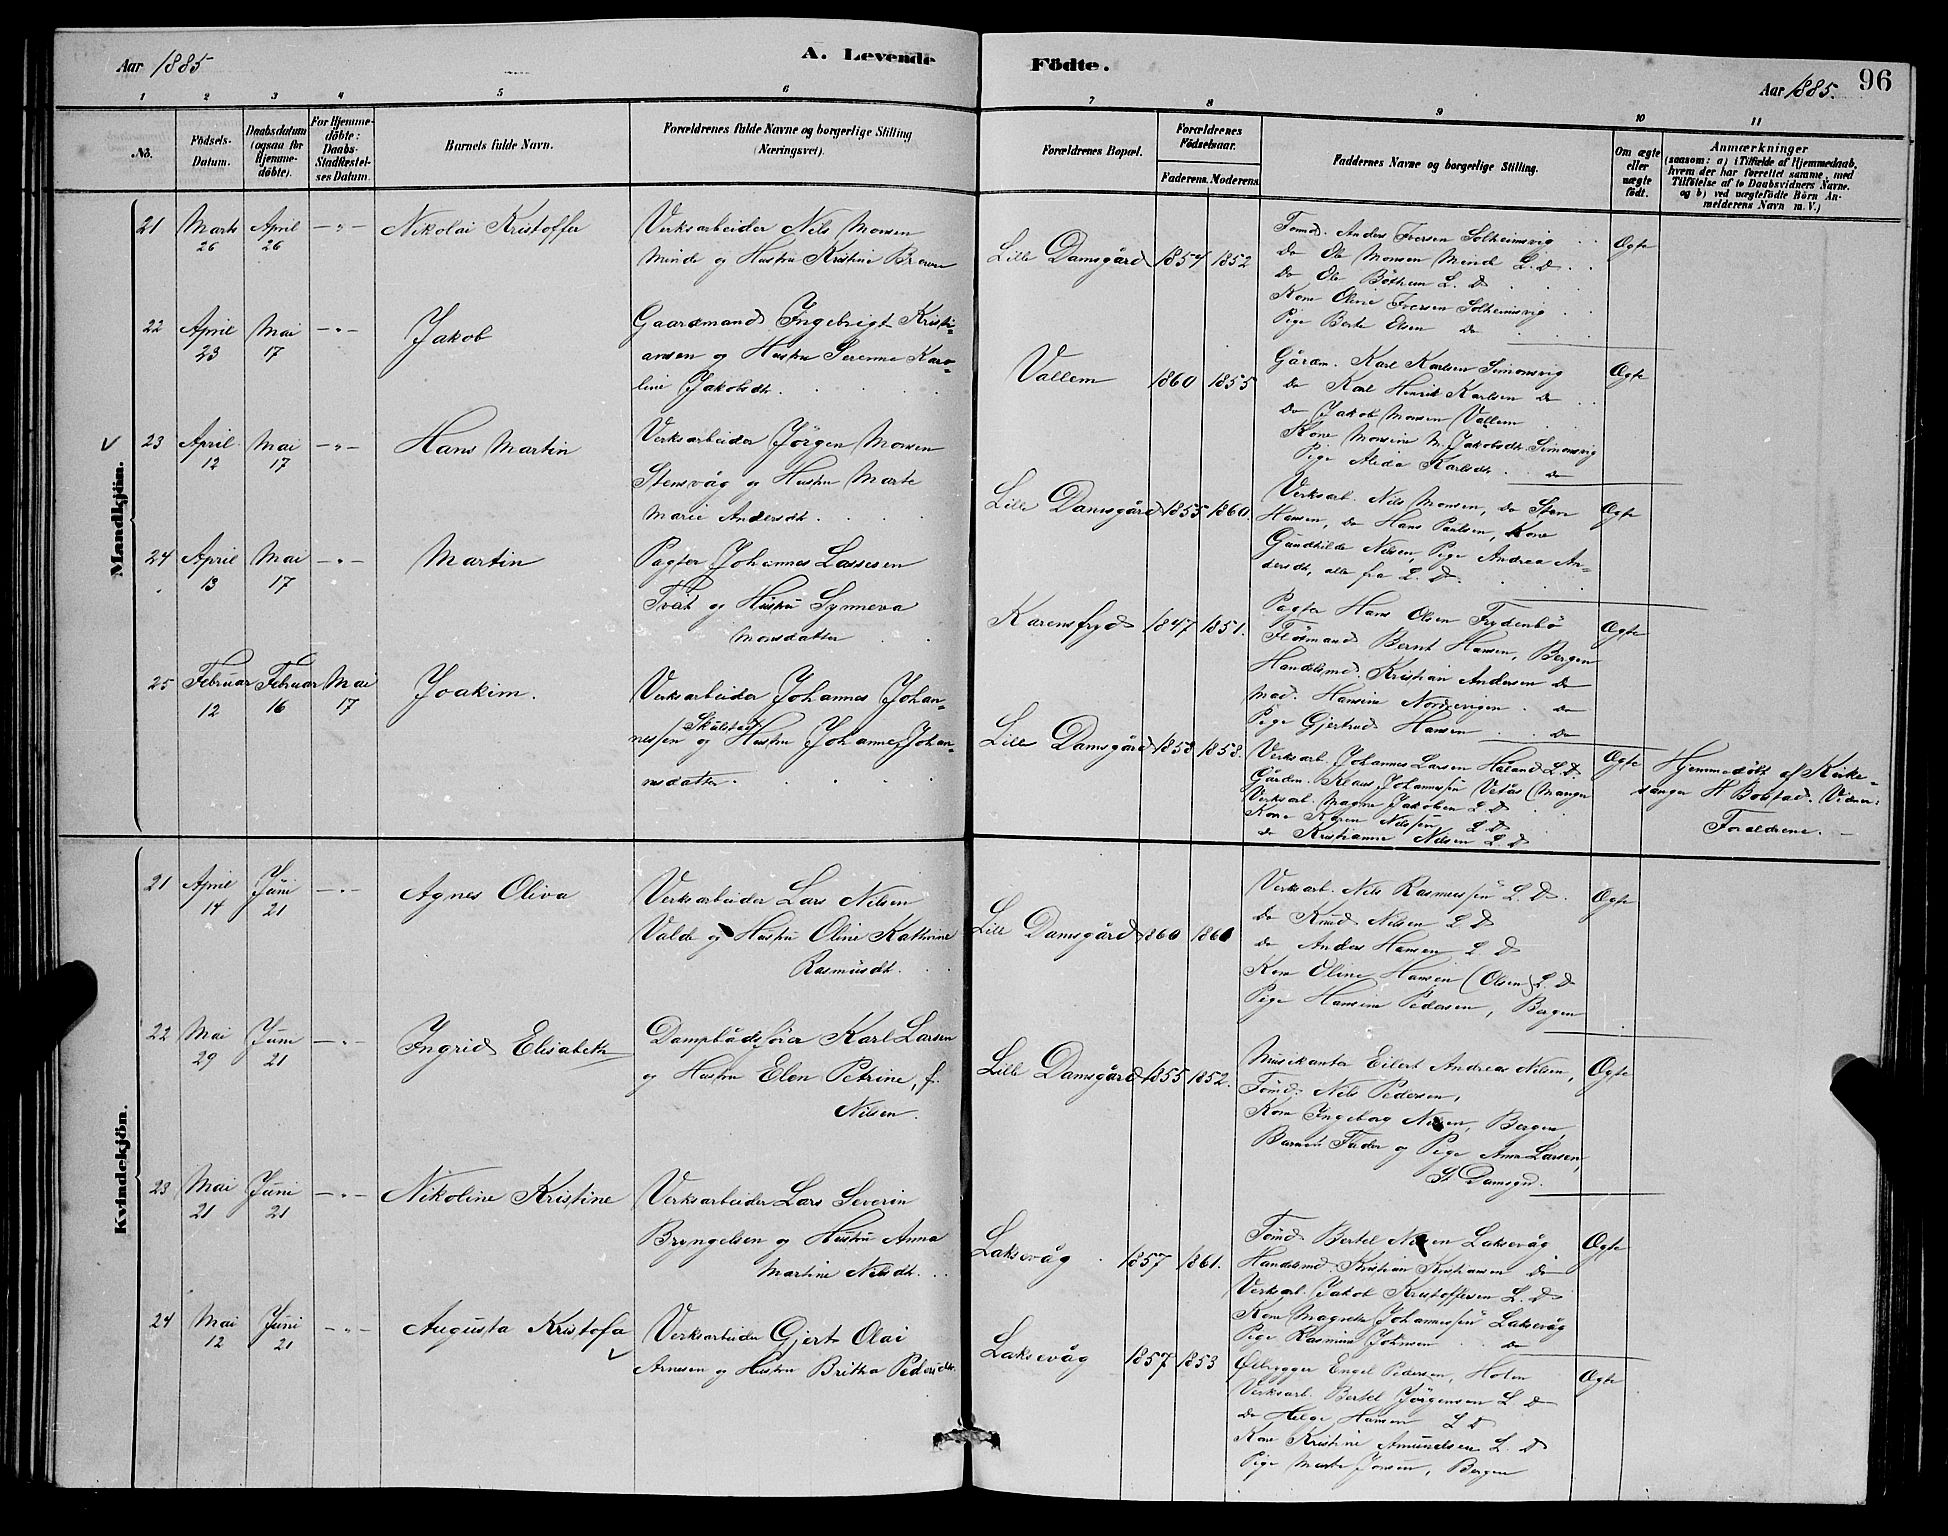 Aar 1885
A. Levende
Födte.
Aar 1885.
96
1 2 3 4 5 6
7 8 9 10 11
No.
Födsels-
Datum.
Daabsdatum
(ogsaa for
Hjemme-
döbte).
For Hjemme-
döbte:
Daabs-
Stadfæstel-
ses Datum.
Barnets fulde Navn.
Forældrenes fulde Navne og borgerlige Stilling
(Næringsvei).
Forældrenes Bopæl.
Forældrenes
Födselsaar.
Faderens. Moderens.
Faddernes Navne og borgerlige Stilling.
Om ægte
eller
uægte
födt.
Anmærkninger
(saasom: a) i Tilfælde af Hjemmedaab,
hvem der har forrettet samme, med
Tilföielse af to Daabsvidners Navne.
og b) ved uægtefödte Börn An-
melderens Navn m. V.)
Mandkjön.
21 Marts 26 April 26 —"— Nikolai Kristoffer
Verksarbeider Nils Monsen
Minde og Hustru Kristine
Lille Damsgård 1854 1852
Tömd. Anders Iversen Solheimsvig
Do Ole Monsen Minde L. D.
Do Ole L. D
Kone Oline Iversen Solheimsvig
Pige Berte Olsen Do
Ægte
22 April 23 Mai 17 —"— Jakob
Gaardmand Ingebrigt Kristi-
ansen og Hustru Serenne Karo-
line Jakobsdt.
Vallem 1860 1855
Gårdm. Karl Karlsen Simonsvig
Do Karl Henrik Karlsen Do
Do Jakob Monsen Vallem
Kone Monsine M. Jakobsdt. Simonsvig
Pige Alida Karlsdt. Do
Ægte
23 April 12 Mai 17 —"— Hans Martin
Verksarbeider Jörgen Monsen
Stensvåg og Hustru Marte
Marie Andersdt.
Lille Damsgård 1855 1860.
Verksarb. Nils Monsen, do Sten
Hansen, do Hans Paulsen, Kone
Gundhilda Nilsen, Pige Andrea An-
dersdt, alle fra L. D.
Ægte
24 April 13 Mai 17 —"— Martin
Pagter Johannes Lassesen
Tveit og Hustru Synneva
Monsdatter
Karensfryd 1847 1851.
Pagter Hans Olsen Frydenbö
Flösmand Bernt Hansen, Bergen
Handelsmd. Kristian Andersen Do
Mad. Hansine Nordvigen Do
Pige Gjertrud Hansen Do
Ægte
25 Februar 12 Februar 16 Mai 17 Joakim.
Verksarbeider Johannes Johan-
Skulstad
nessen og Hustru Johanne Johan-
nesdatter.
Lille Damsgård 1853 1858.
Verksarb. Johannes Larsen Håland L. D.
Gårdm. Klaus Johannessen Vetås (Manger
Verksarb. Magne Jakobsen L. D
Kone Karen Nilssen L. D
do Kristianne Nilsen L. D
Ægte
Hjemmedöbt af Kirke-
sanger H Bolstad. Vidner:
Forældrene.
Kvindekjön.
21 April 14 Juni 21 —"— Agnes Oliva
Verksarbeider Lars Nilsen
Valde og Hustru Oline Kathrine
Rasmusdt.
Lille Damsgård 1860 1860
Verksarb. Nils Rasmussen L. D.
do Knud Nilsen L. D
do Anders Hansen L. D
Kone Oline Hansen (Olsen) L. D
Pige Hansine Pedersen, Bergen
Ægte
22 Mai 29 Juni 21 —"— Ingrid Elisabeth
Dampbådsförer Karl Larsen
og Hustru Elen Petrine, f.
Nilsen.
Lille Damsgård 1855 1852.
Musikantør Eilert Andreas Nilsen,
Tömd. Nils Pedersen,
Kone Ingeborg Nilsen, Bergen,
Barnets Fader og Pige Anna Larsen,
St Damsgrd.
Ægte
23 Mai 21 Juni 21 —"— Nikoline Kristine
Verksarbeider Lars Severin
Bryngelsen og Hustru Anna
Martine Nilsdt.
Laksevåg 1857 1861.
Tömd Bertel Nilsen Laksevåg
Handelsmd. Kristian Kristiansen do
Verksarb. Jakob Kristoffersen L. D
Kone Magrethe Johannessen Laksevåg
Pige Rasmine Johnsen do
Ægte
24 Mai 12 Juni 21 —"— Augusta Kristofa
Verksarbeider Gjert Olai
Arnesen og Hustru Britha Pedersdt.
Laksevåg 1857 1853
Ölbrygger Engel Pedersen, Holen
Verksarb. Bertel Jörgensen L. D
do Helge Hansen L D
Kone Kristine Amundsen L. D
Pige Marta Jonsen, Bergen
Ægte